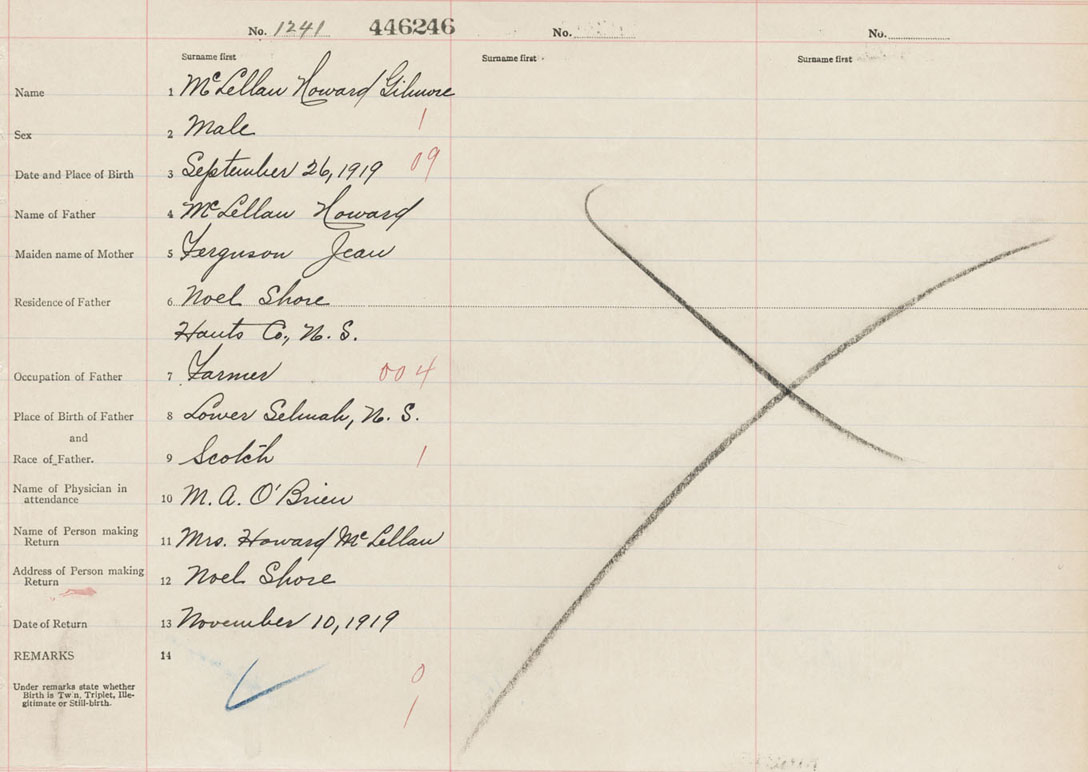 No. 1241 446246 No. No.
Surname first Surname first Surname first
Name 1 McLellan Howard Gilmore
Sex 2 Male 1
Date and Place of Birth 3 September 26, 1919 09
Name of Father 4 McLellan Howard
Maiden name of Mother 5 Ferguson Jean
Residence of Father 6 Noel Shore
Hants Co., N. S.
Occupation of Father 7 Farmer 004
Place of Birth of Father 8 Lower Selmah, N. S.
and
Race of Father. 9 Scotch 1
Name of Physician in
attendance 10 M. A. O'Brien
Name of Person making
Return 11 Mrs. Howard McLellan
Address of Person making
Return 12 Noel Shore
Date of Return 13 November 10, 1919
REMARKS 14
0
Under remarks state whether
Birth is Twin, Triplet, Ille-
gitimate or Still-birth.
1